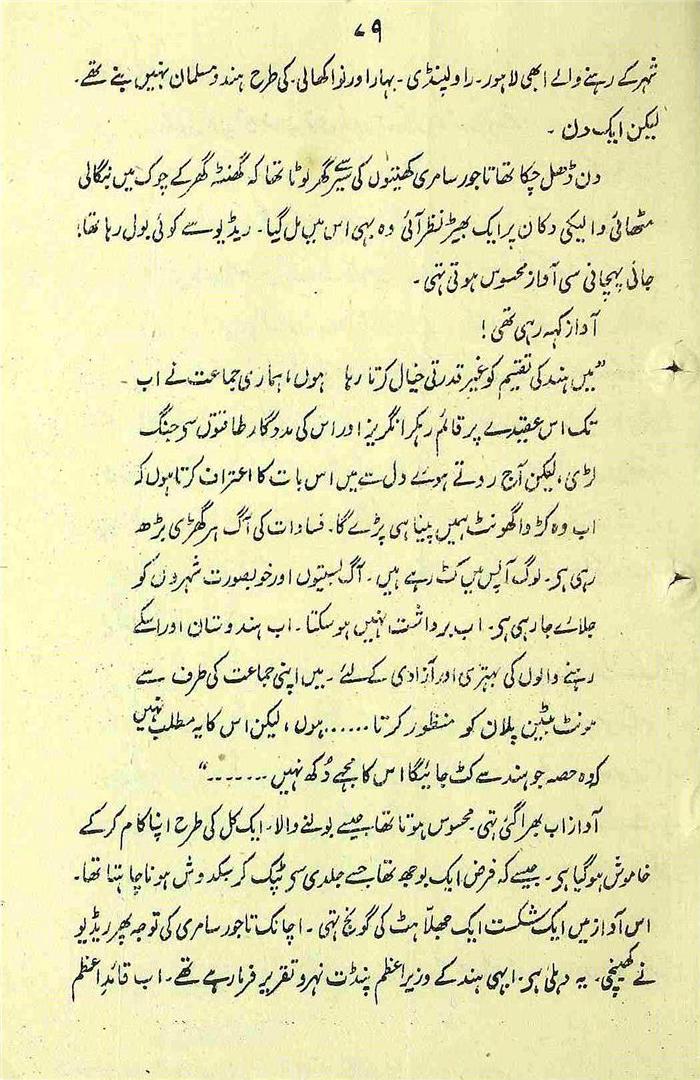 ۷۹
شہر کے رہنے والے ابھی لاہور۔ راولپنڈی۔ بہار اور نواکھالی۔ کی طرح ہندو مسلمان نہیں بنے تھے۔
لیکن ایک دن ۔
دن ڈھل چکا تھا تاجور سامری کھیتوں کی سیر سے گھر لوٹا تھا کہ گھنٹہ گھر کے چوک میں بنگالی
مٹھائی والیکی دکان پر ایک بھیڑ نظر آئی وہ بہی اس میں مل گیا۔ ریڈیو سے کوئی بول رہا تھا!
جانی پہچانی سی آواز محسوس ہوتی تہی۔
آواز کہہ رہی تھی!
”میں ہند کی تقیم کو غیر قدرتی خیال کرتا رہا ہوں، ہماری جماعت نے اب
تک اس عقیدے پر قائم رہکر انگریز اور اس کی مددگار طاقتوں سی جنگ
لڑی، لیکن آج روتے ہوئے دل سے میں اس بات کا اعتراف کرتا ہوں کہ
اب وہ کڑوا گھونٹ ہمیں پینا ہی پڑے گا۔ فسادات کی آگ ہر گھڑی بڑھ
رہی ہی۔ لوگ آپس میں کٹ رہے ہیں۔ آگ بستیوں اور خوبصورت شہروں کو
جلائے جا رہی ہی۔ اب برداشت نہیں ہو سکتا۔ اب ہندوستان اور اسکے
رہنے والوں کی بہتری اور آزادی کے لئے۔ میں اپنی جماعت کی طرف سے
مونٹ بیٹن پلان کو منظور کرتا ...... ہوں، لیکن اس کا یہ مطلب نہیں
کہ وہ حصہ جو ہند سے کٹ جائیگا اس کا مجھے دُکھ نہیں .......“
آواز اب بھرا گئی تہی۔ محسوس ہوتا تھا جیسے بولنے والا۔ ایک کل کی طرح اپنا کام کر کے
خاموش ہو گیا ہی۔ جیسے کہ فرض ایک بوجھ تھا جسے جلدی سی پٹک کر سبکدوش ہونا چاہتا تھا۔
اس آواز میں ایک شکست ایک جھلّاہٹ کی گونج تہی۔ اچانک تاجور سامری کی توجہ پھر ریڈیو
نے کھینچی۔ یہ دہلی ہی۔ ابہی ہند کے وزیر اعظم پنڈت نہرو تقریر فرما رہے تھے۔ اب قائدِ اعظم